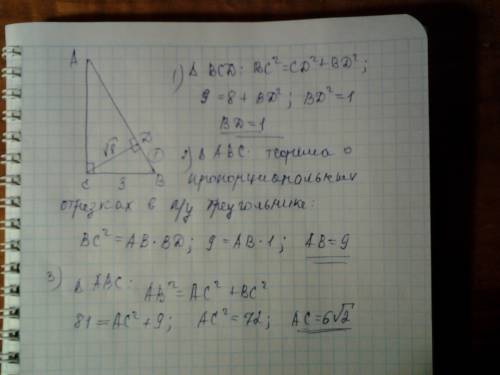 A
√8
D
1
C
3
B
1) Δ BCD: BC²=CD²+BD²;
9=8+BD²; BD²=1
BD=1
2) Δ ABC: теорема о
пропорциональных
отрезках в п/у треугольнике:
BC²=AB·BD; 9=AB·1; AB=9
3)
Δ ABC: AB²=AC²+BC²
81=AC²+9; AC²=72; AC=6√2